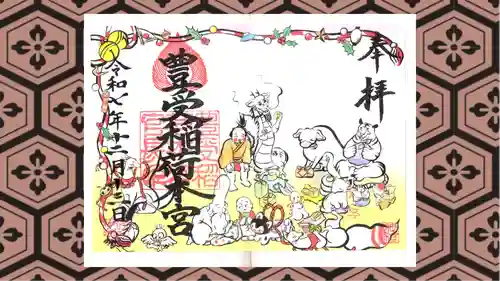 奉拝
豊受稲荷本宮
令和七年十二月十二日